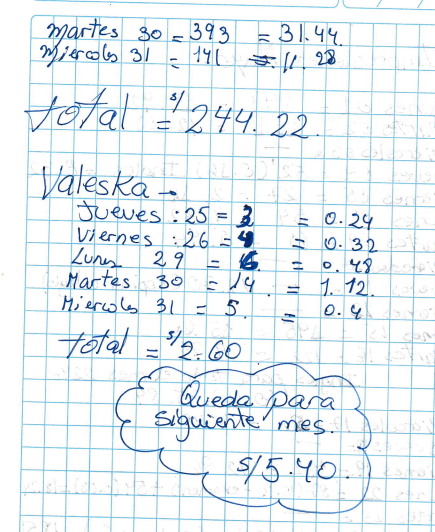 martes 30 = 393 = 31.44
Miercoles 31 = 141 = 11.28
total = s/ 244.22
Valeska -
Jueves : 25 = 3 = 0.24
Viernes : 26 = 4 = 0.32
Lunes 29 = 6 = 0.48
Martes 30 = 14 = 1.12.
Miercoles 31 = 5. = 0.4
total = s/ 2.60
Queda para
siguiente mes.
s/ 5.40.